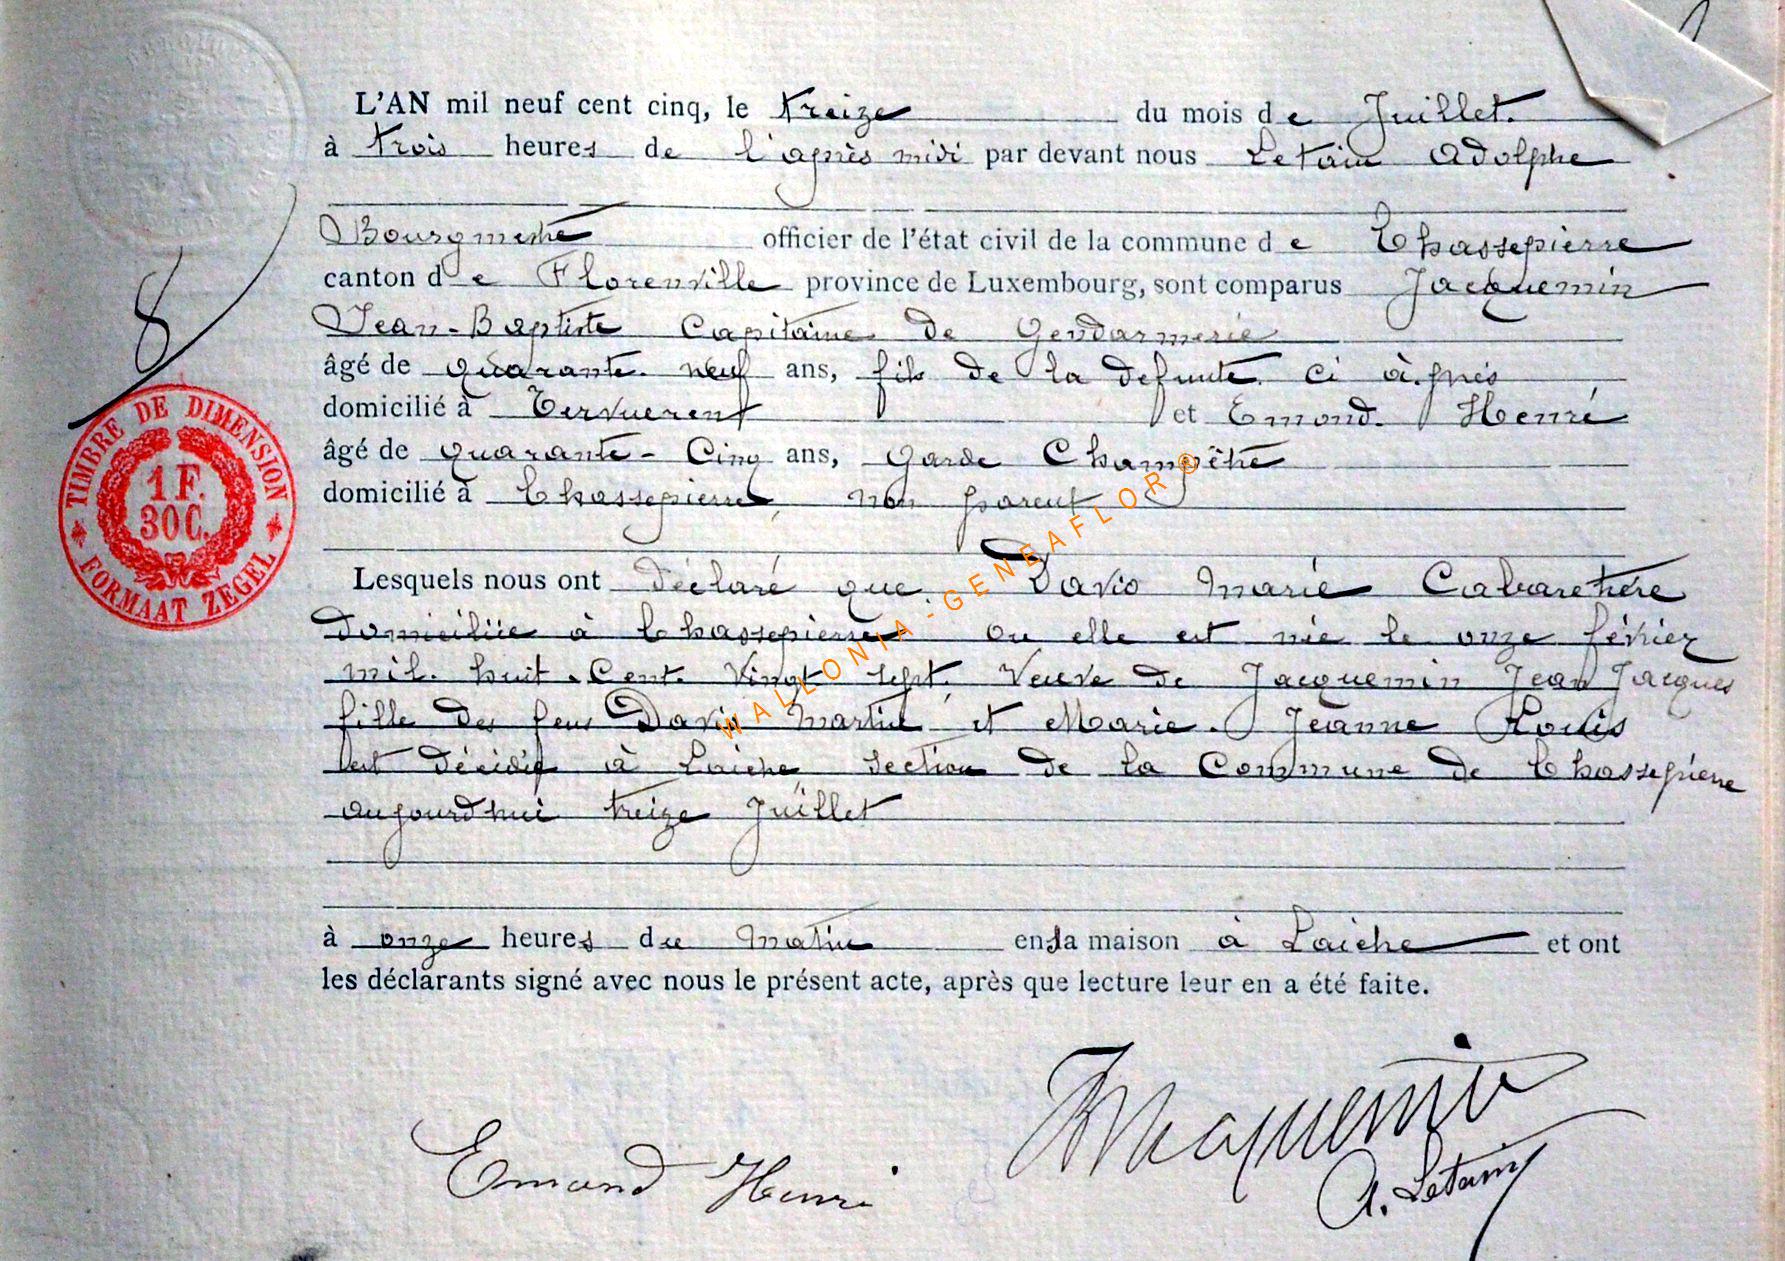 L'AN mil neuf cent cinq, le treize du mois de Juillet.
à trois heures de l'après midi par devant nous Letain Adolphe
Bourgmestre officier de l'état civil de la commune de Chassepierre
canton de Florenville province de Luxembourg, sont comparus Jacquemin
Jean-Baptiste Capitaine de Gendarmerie
âgé de quarante neuf ans, fils de la defunte ci à près
domicilié à Tervueren et Emond Henri
âgé de quarante-Cinq ans, Garde Champêtre
domicilié à Chassepierre, non parent
Lesquels nous ont déclaré que David Marie Cabaretière
domiciliée à Chassepierre ou elle est née le onze février
mil huit Cent Vingt sept. Veuve de Jacquemin Jean Jacques
fille des feus David Martin et Marie Jeanne Louis
est décédée à Laiche section de la Commune de Chassepierre
aujourd'hui treize Juillet
à onze heures du matin en sa maison à Laiche et ont
les déclarants signé avec nous le présent acte, après que lecture leur en a été faite.
Jacquemin
Emond Henri
A. Letain
8
TIMBRE DE DIMENSION
1 F.
30 C.
FORMAAT ZEGEL
WALLONIA - GENEAFLOR ®